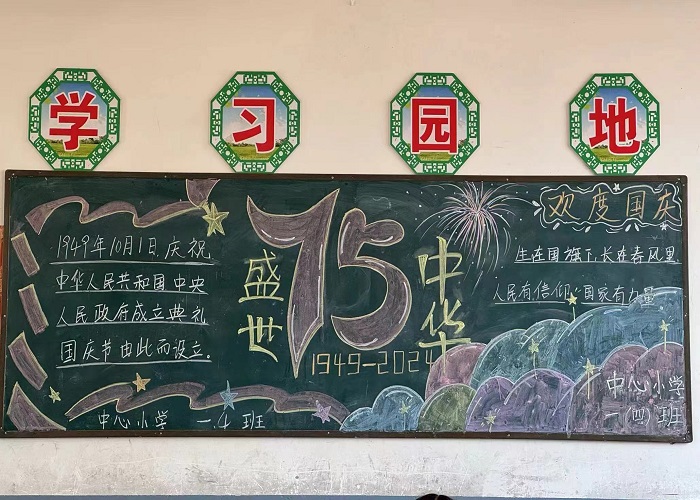 学习园地
1949年10月1日,庆祝
中华人民共和国中央
人民政府成立典礼
国庆节由此而设立.
中心小学 一.4班
盛世
75
中华
1949-2024
欢度国庆
生在国旗下,长在春风里
人民有信仰 国家有力量
中心小学
一(四)班